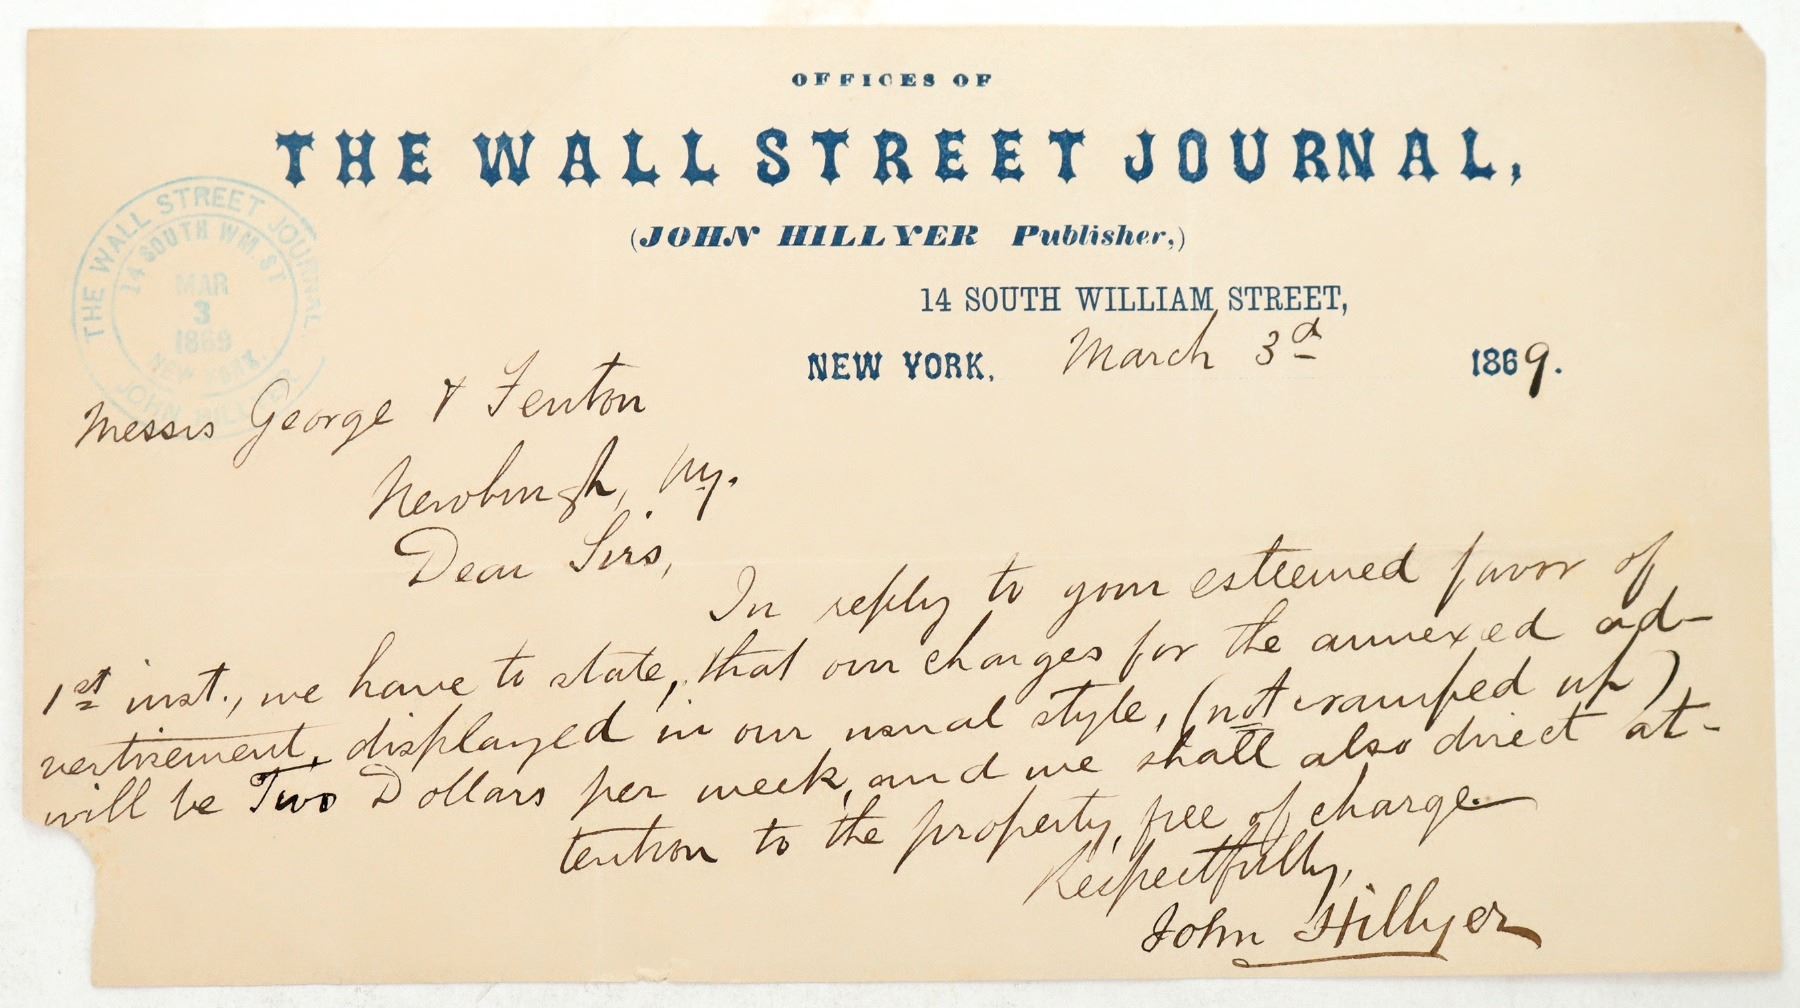 OFFICES OF
THE WALL STREET JOURNAL,
(JOHN HILLYER Publisher,)
14 SOUTH WILLIAM STREET,
NEW YORK, March 3d 1869.
THE WALL STREET JOURNAL.
14 SOUTH WM. ST
MAR
3
1869
NEW YORK.
JOHN HILLYER
Messrs George & Fenton
Newburgh, Ny.
Dear Sirs,
In reply to your esteemed favor of
1st inst., we have to state, that our charges for the annexed ad-
vertisement, displayed in our usual style, (not cramped up)
will be Two Dollars per week, and we shall also direct at-
tention to the property, free of charge.
Respectfully,
John Hillyer